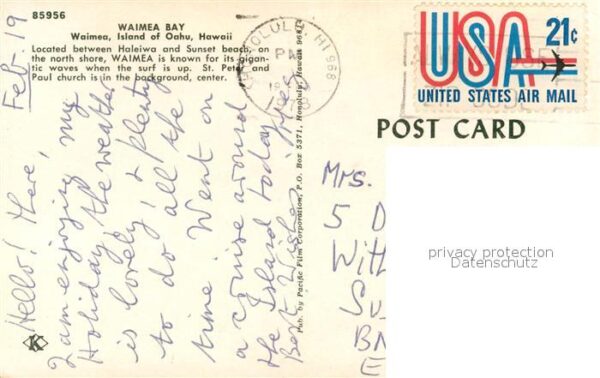 85956
WAIMEA BAY
Waimea, Island of Oahu, Hawaii
Located between Haleiwa and Sunset beach, on
the north shore, WAIMEA is known for its gigan-
tic waves when the surf is up. St. Peter and
Paul church is in the background, center.
Feb. 19
Hello! there,
I am enjoying my
Holiday, the weather
is lovely, & plenty
to do all the
time. Went on
a cruise around
the Island today
Best Wishes
Pub. by Pacific Film Corporation, P.O. Box 5371, Honolulu, Hawaii 96814
K
HONOLULU, HI 968
PM
USA 21c
UNITED STATES AIR MAIL
POST CARD
Mrs.
5 D
With
Su
BN
E
privacy protection
Datenschutz